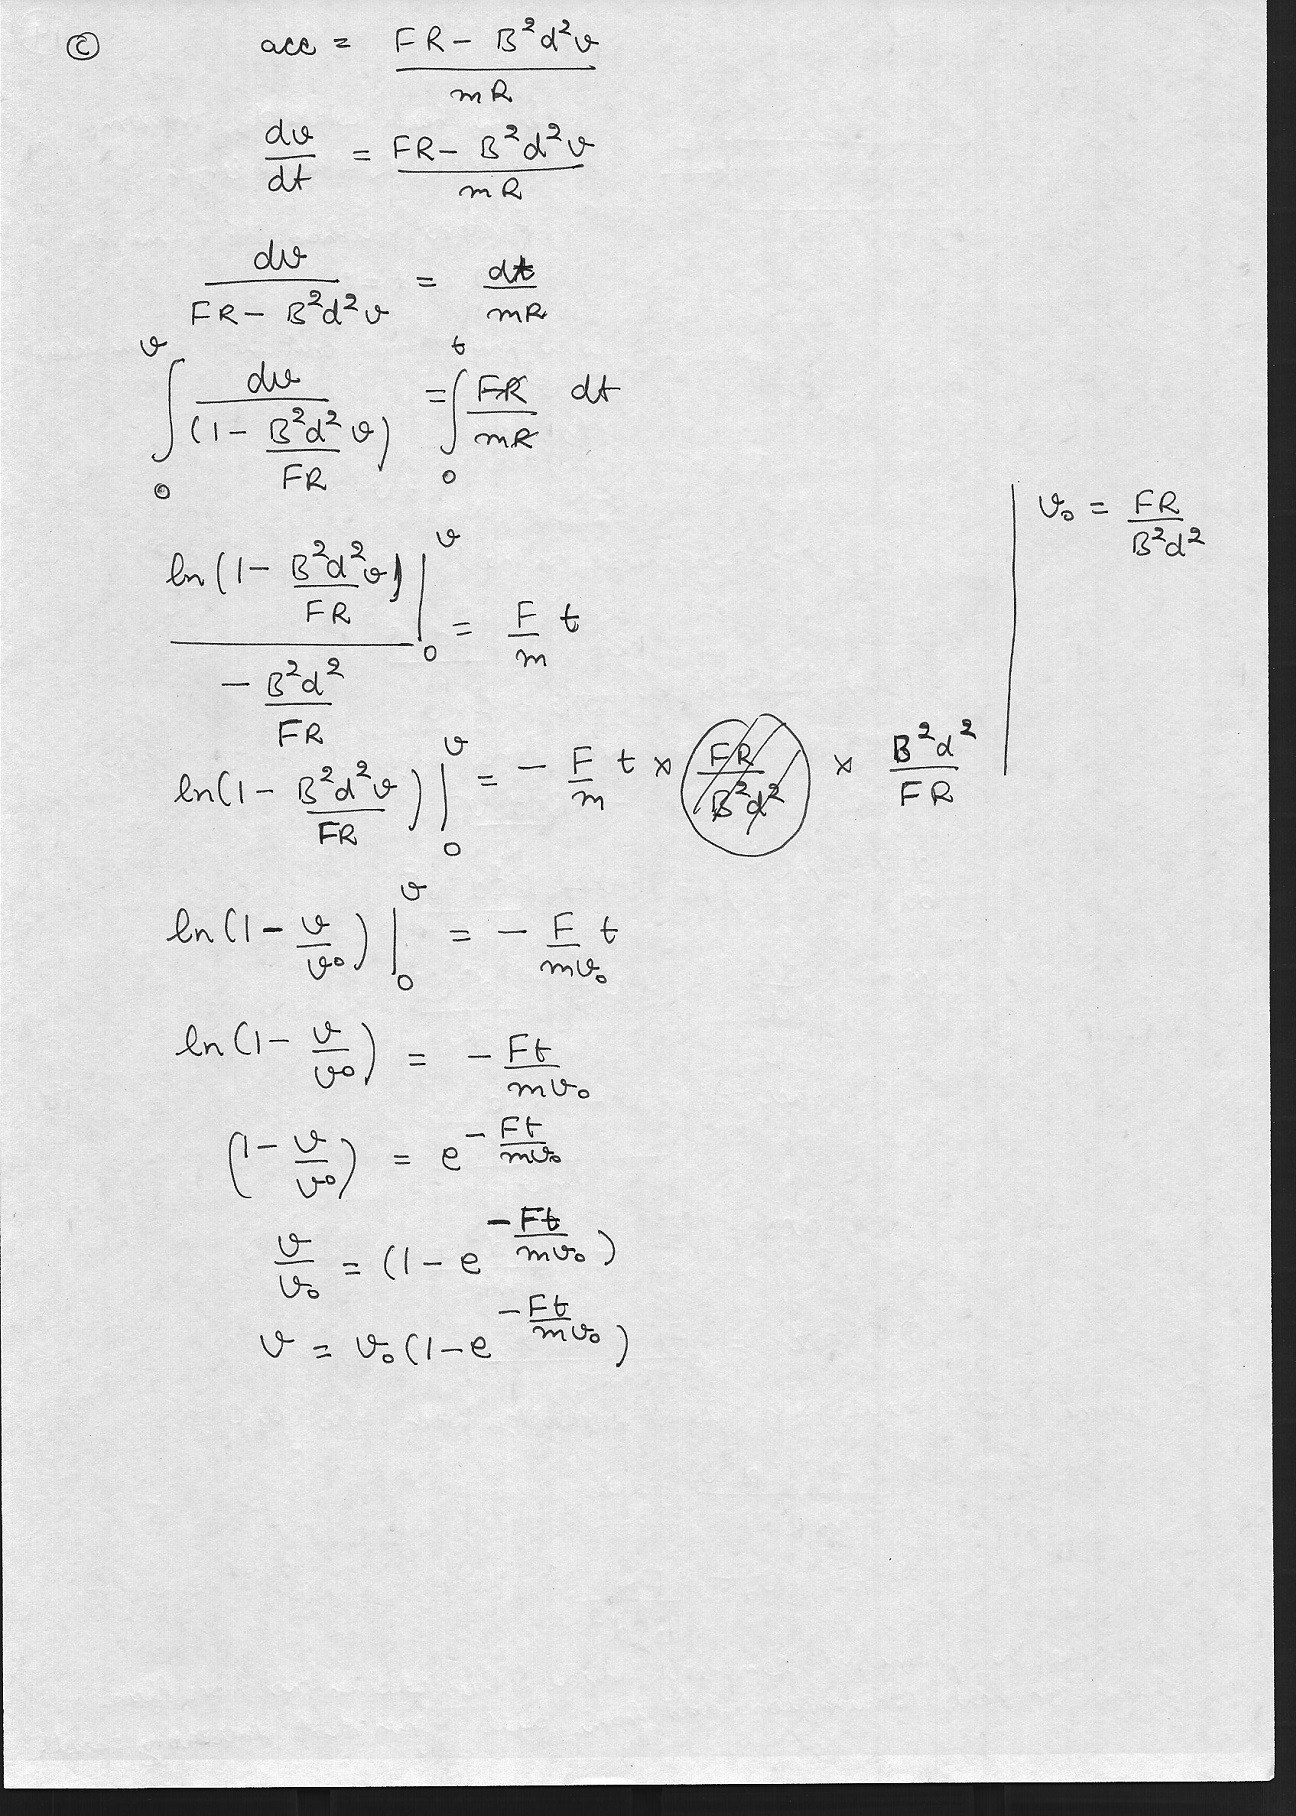 ⓒ acc = (FR − B²d²v)/(mR)
dv/dt = (FR − B²d²v)/(mR)
dv/(FR − B²d²v) = dt/(mR)
∫₀ᵛ dv/(1 − (B²d²/FR) v) = ∫₀ᵗ (FR/mR) dt
v₀ = FR/(B²d²)
ln(1 − B²d²v/FR)/(−B²d²/FR) |₀ᵛ = (F/m) t
ln(1 − B²d²v/FR) |₀ᵛ = −(F/m) t × FR/(B²d²) × B²d²/(FR)
ln(1 − v/v₀) |₀ᵛ = −(F/(mv₀)) t
ln(1 − v/v₀) = −Ft/(mv₀)
(1 − v/v₀) = e^(−Ft/(mv₀))
v/v₀ = (1 − e^(−Ft/(mv₀)))
v = v₀(1 − e^(−Ft/(mv₀)))